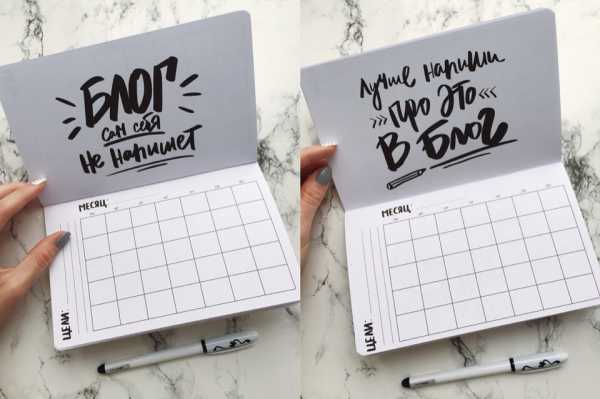 БЛОГ
САМ СЕБЯ
НЕ НАПИШЕТ
МЕСЯЦ:
ЦЕЛИ:
ЛУЧШЕ НАПИШИ
ПРО ЭТО
В БЛОГ
МЕСЯЦ:
ЦЕЛИ: